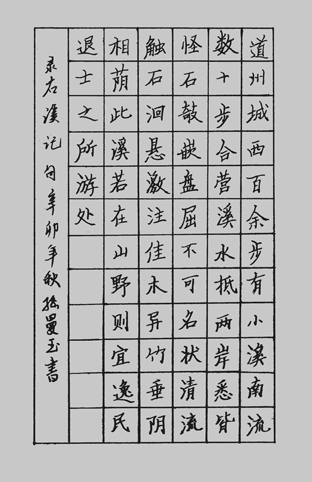 道州城西百余步有小溪南流
数十步合营溪水抵两岸悉皆
怪石敧嵌盘屈不可名状清流
触石洄悬激注佳木异竹垂阴
相荫此溪若在山野则宜逸民
退士之所游处
录右溪记句辛卯年秋孫曼玉書